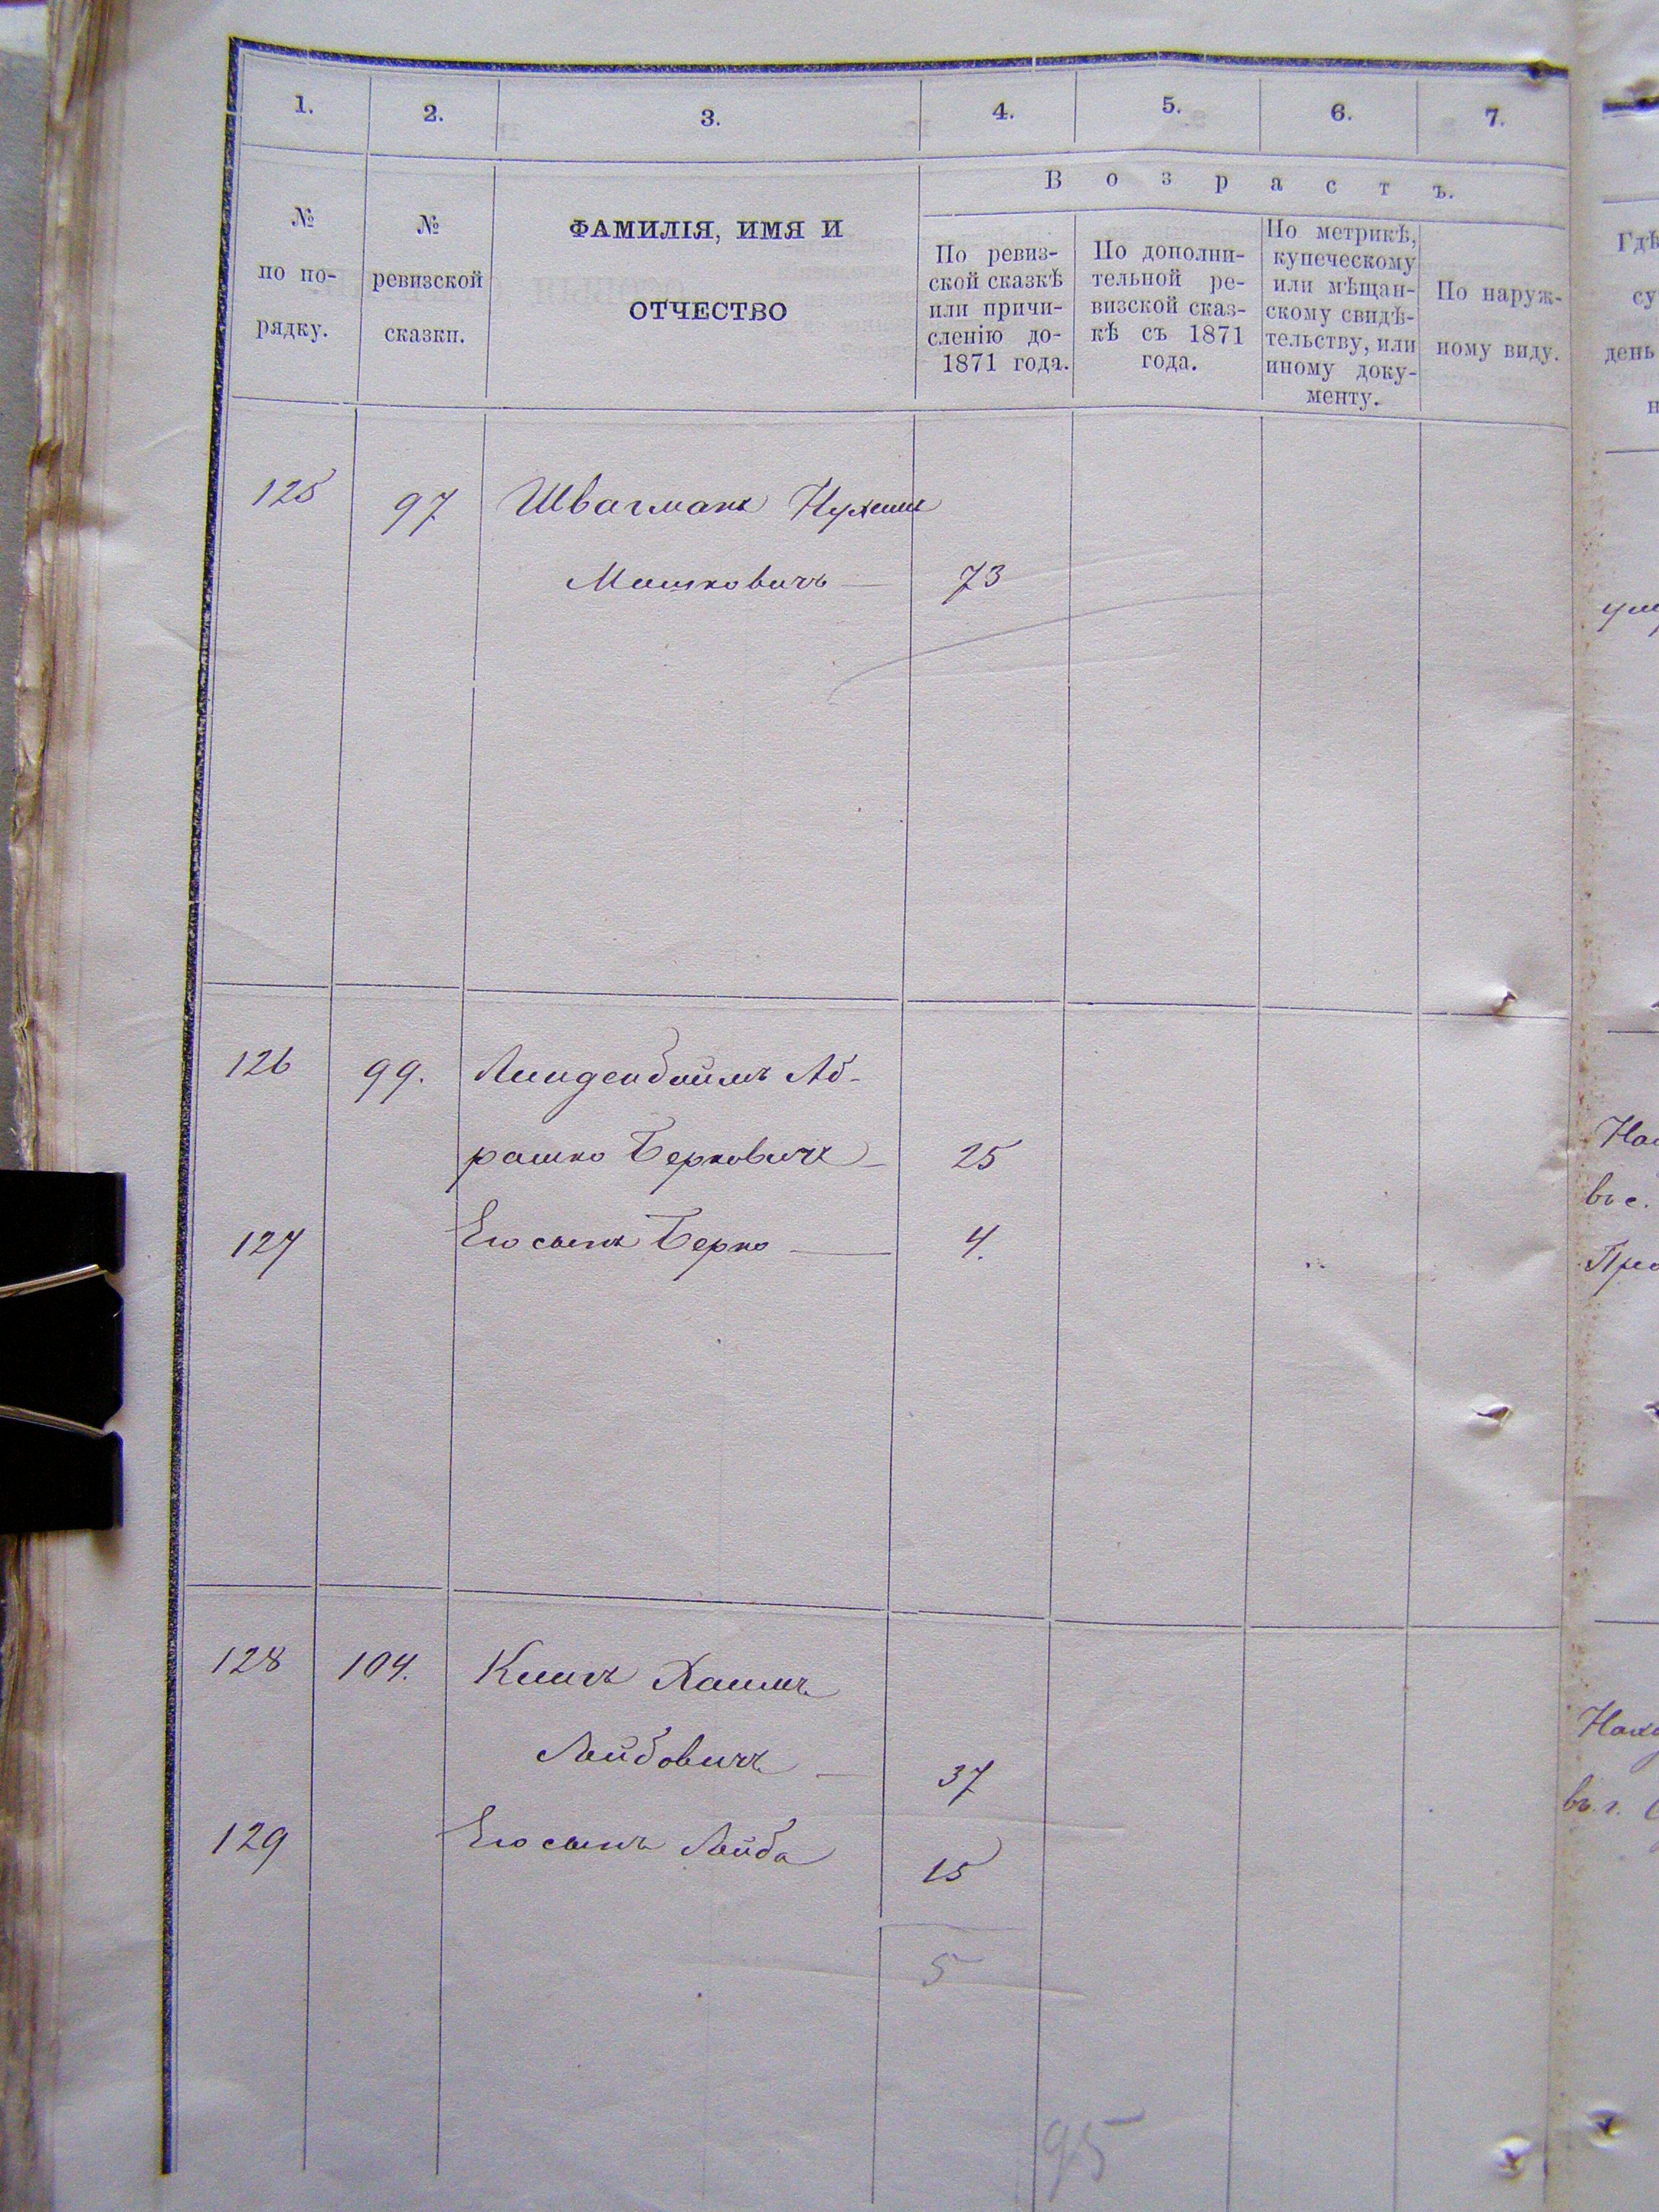 1. 2. 3. 4. 5. 6. 7.
В о з р а с т ъ.
№ по по-
рядку.
№
ревизской
сказки.
ФАМИЛІЯ, ИМЯ И
ОТЧЕСТВО
По ревиз-
ской сказкѣ
или причи-
сленію до-
1871 года.
По дополни-
тельной ре-
визской сказ-
кѣ съ 1871
года.
По метрикѣ,
купеческому
или мѣщан-
скому свидѣ-
тельству, или
иному доку-
менту.
По наруж-
ному виду.
Гдѣ
су
день
н
125 97 Швагманъ Нухимъ
Мошковичъ 73
126 99. Линденбоймъ Аб-
рашко Берковичъ 25
127 Его сынъ Берко 4.
въ с.
128 104. Хаимъ
Лейбовичъ 37
129 Его сынъ Лейба 15
въ г.
5
95